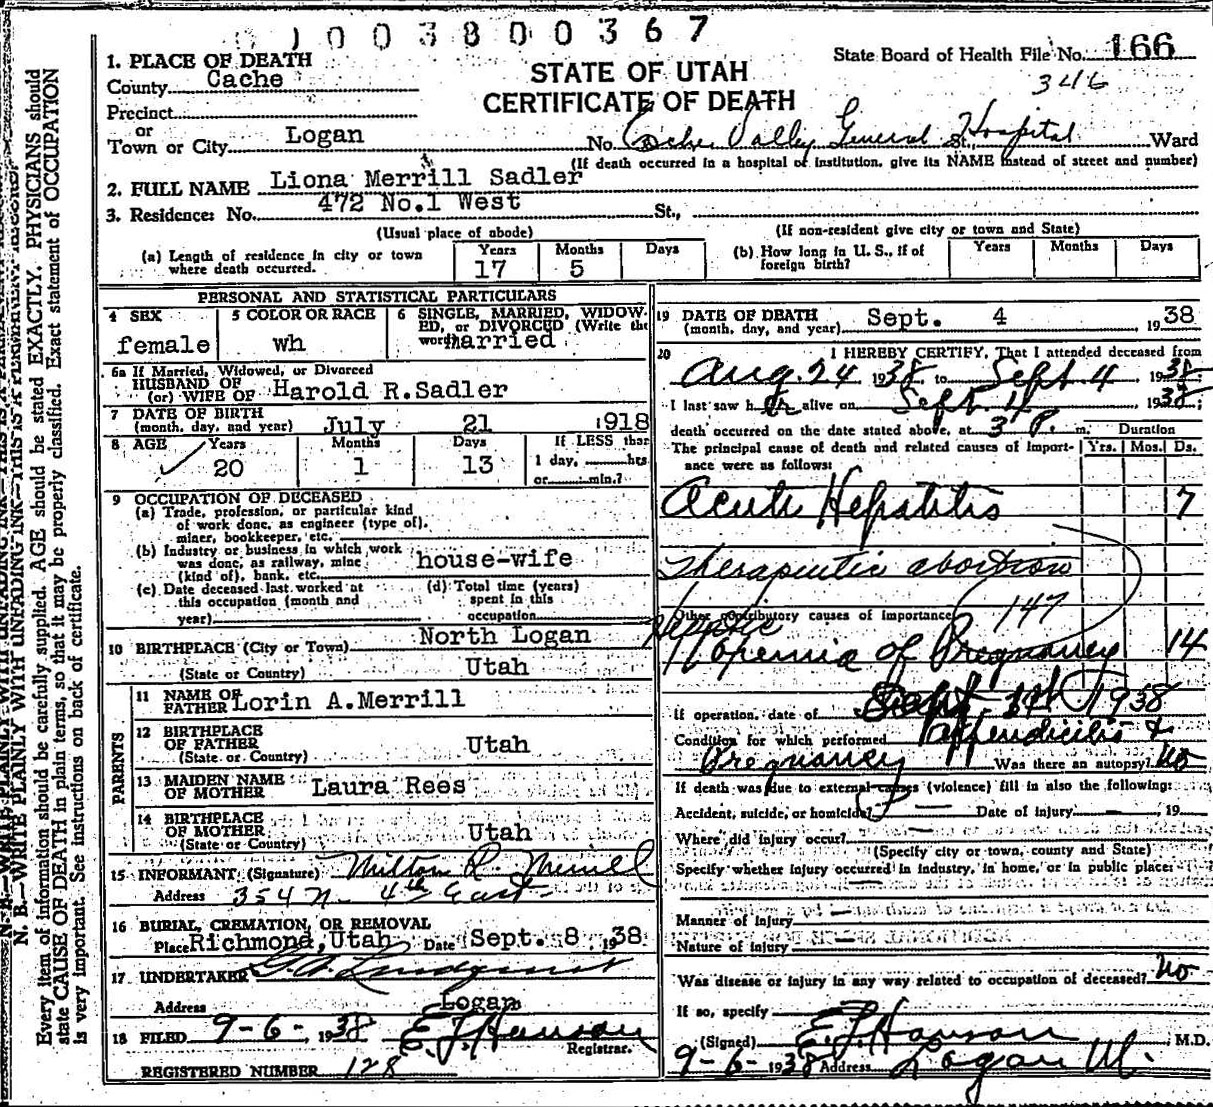 1003800367
State Board of Health File No. 166
346
STATE OF UTAH
CERTIFICATE OF DEATH
1. PLACE OF DEATH
County Cache
Precinct
or
Town or City Logan No. Cache Valley General Hospital St., Ward
(If death occurred in a hospital or institution, give its NAME instead of street and number)
2. FULL NAME Liona Merrill Sadler
3. Residence: No. 472 No.1 West St.,
(Usual place of abode) (If non-resident give city or town and State)
(a) Length of residence in city or town where death occurred. Years 17 Months 5 Days
(b) How long in U. S., if of foreign birth? Years Months Days
PERSONAL AND STATISTICAL PARTICULARS
4 SEX female
5 COLOR OR RACE wh
6 SINGLE, MARRIED, WIDOWED, or DIVORCED (Write the word) married
6a If Married, Widowed, or Divorced
HUSBAND OF
(or) WIFE OF Harold R.Sadler
7 DATE OF BIRTH
(month, day, and year) July 21 1918
8 AGE Years 20 Months 1 Days 13 If LESS than 1 day, hrs or min.?
9 OCCUPATION OF DECEASED
(a) Trade, profession, or particular kind
of work done, as engineer (type of),
miner, bookkeeper, etc.
(b) Industry or business in which work
was done, as railway, mine
(kind of), bank, etc. house-wife
(c) Date deceased last worked at
this occupation (month and
year)
(d) Total time (years)
spent in this
occupation
10 BIRTHPLACE (City or Town) North Logan
(State or Country) Utah
PARENTS
11 NAME OF
FATHER Lorin A.Merrill
12 BIRTHPLACE
OF FATHER
(State or Country) Utah
13 MAIDEN NAME
OF MOTHER Laura Rees
14 BIRTHPLACE
OF MOTHER
(State or Country) Utah
15 INFORMANT (Signature) Milton R. Merrill
Address 354 N. 4th East
16 BURIAL, CREMATION, OR REMOVAL
Place Richmond, Utah Date Sept. 8, 1938
17 UNDERTAKER Lundquist
Address Logan
18 FILED 9-6-, 1938 E. J. Hanson
Registrar.
REGISTERED NUMBER 128
19 DATE OF DEATH
(month, day, and year) Sept. 4, 1938
20 I HEREBY CERTIFY, That I attended deceased from
Aug. 24 1938, to Sept 4, 1938
I last saw her alive on Sept 4, 1938;
death occurred on the date stated above, at 3 P. m. Duration
The principal cause of death and related causes of importance were as follows: Yrs. Mos. Ds.
Acute Hepatitis 7
Therapeutic abortion
Other contributory causes of importance 147
of Pregnancy 14
If operation, date of Sept 1938
Condition for which performed Appendicitis &
Pregnancy Was there an autopsy? No
If death was due to external causes (violence) fill in also the following:
Accident, suicide, or homicide? Date of injury , 19
Where did injury occur?
(Specify city or town, county and State)
Specify whether injury occurred in industry, in home, or in public place:
Manner of Injury
Nature of Injury
Was disease or injury in any way related to occupation of deceased? No
If so, specify
(Signed) E. J. Hanson M.D.
9-6- 1938 Address Logan
N. B.—WRITE PLAINLY WITH UNFADING INK—THIS IS A PERMANENT RECORD.
Every item of information should be carefully supplied. AGE should be stated EXACTLY. PHYSICIANS should
state CAUSE OF DEATH in plain terms, so that it may be properly classified. Exact statement of OCCUPATION
is very important. See instructions on back of certificate.